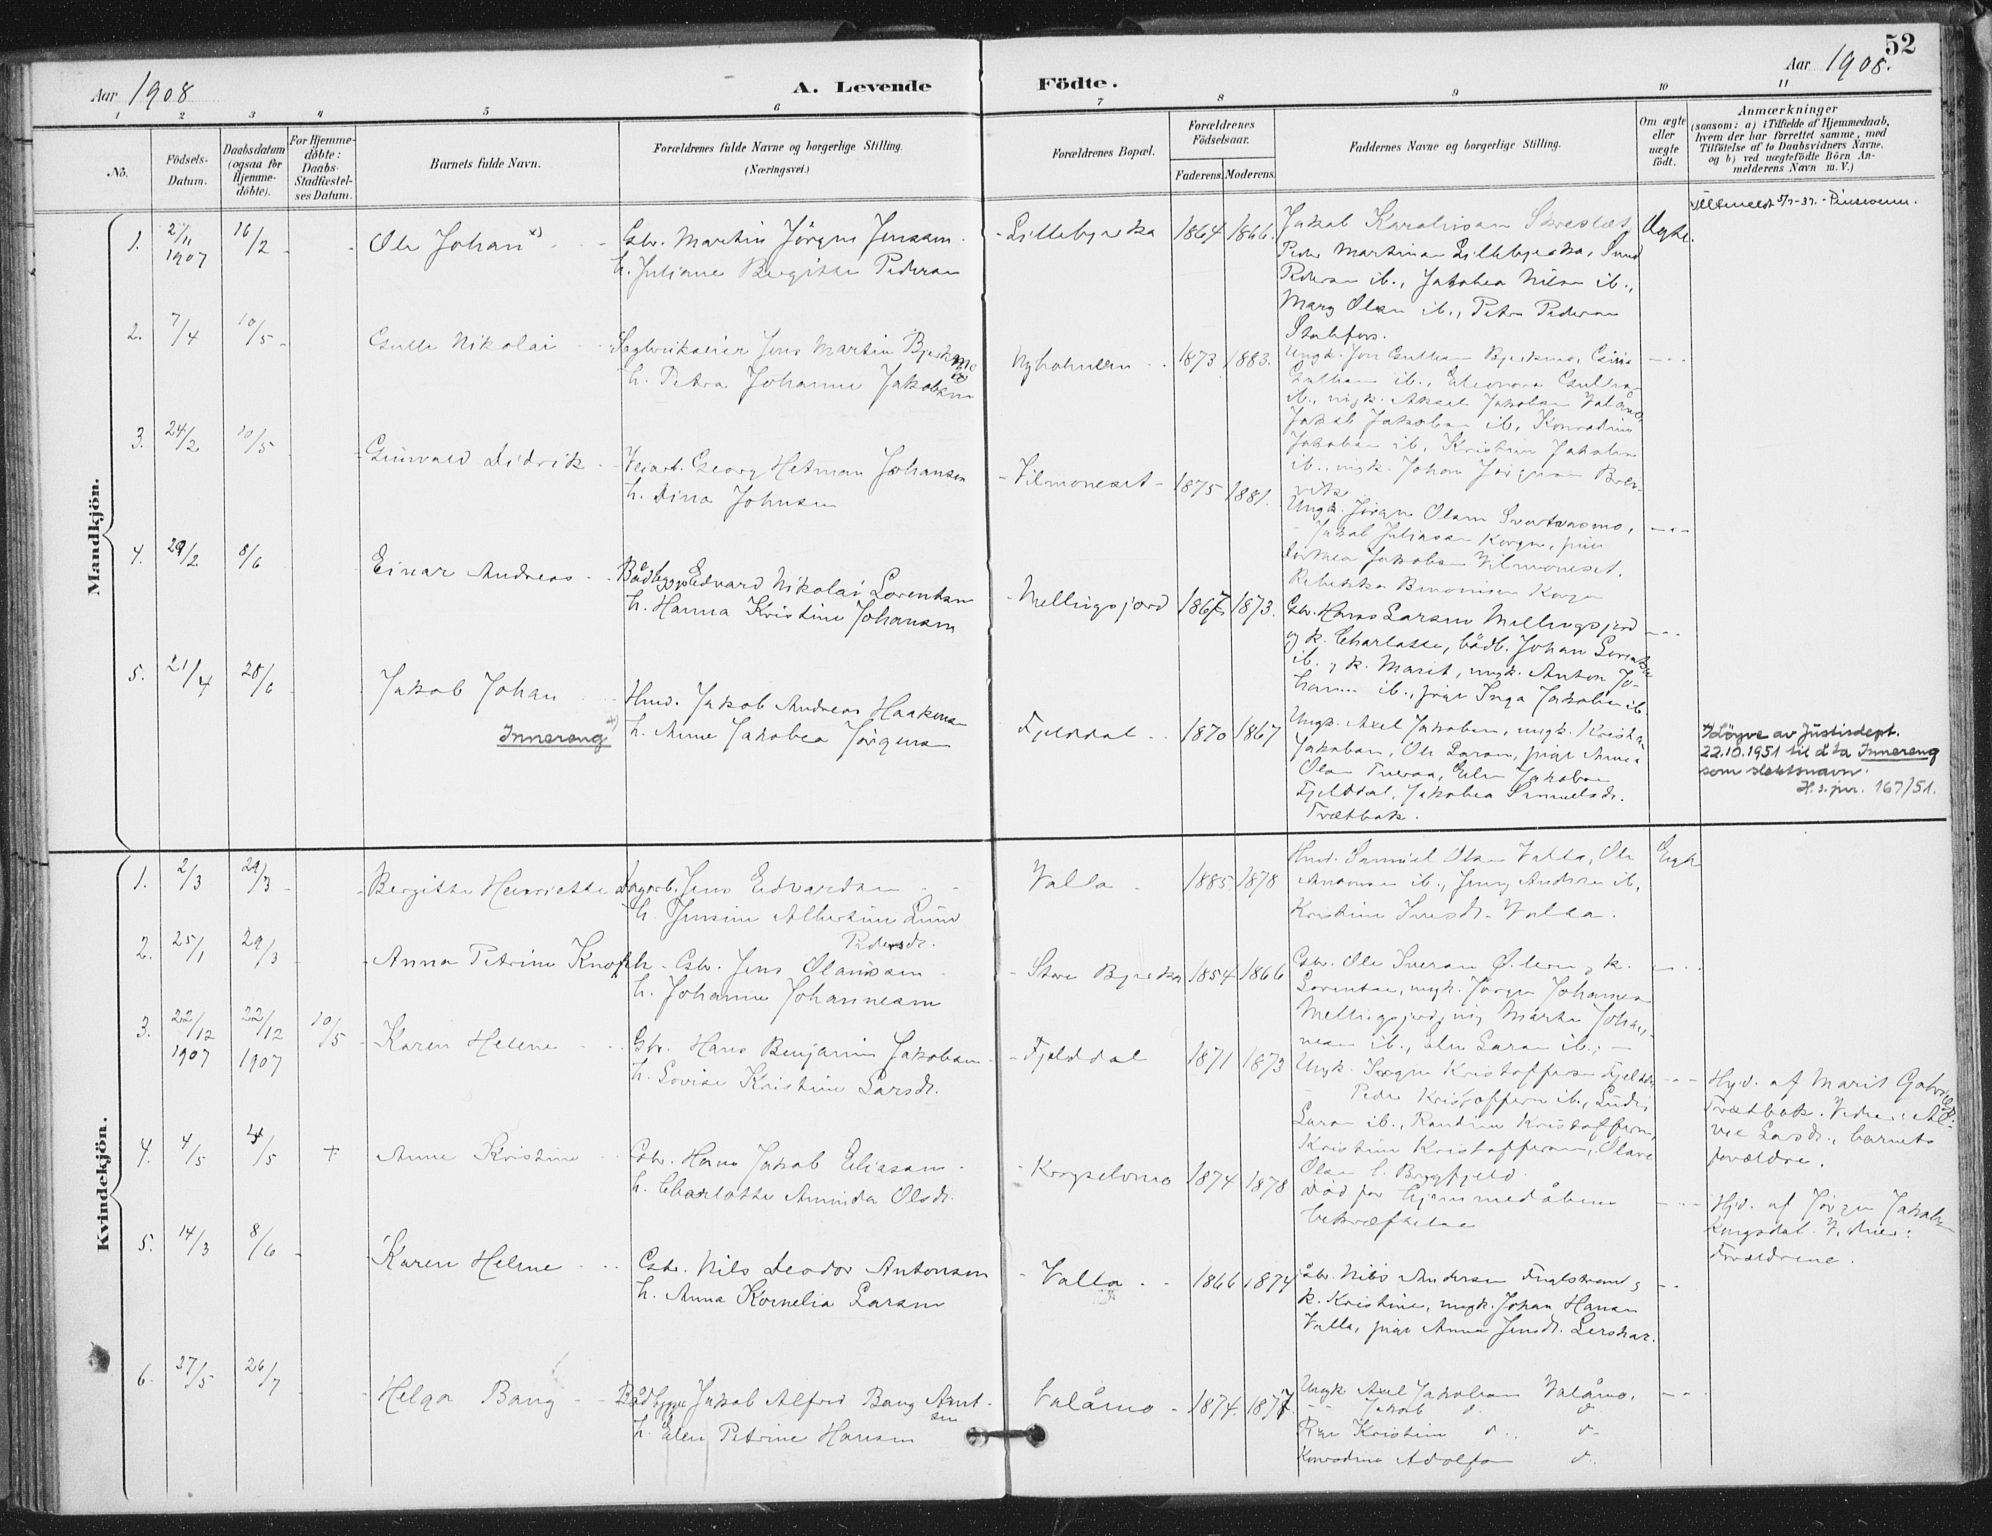 52
Aar 1908
A. Levende
Födte.
Aar 1908.
1 2 3 4 5 6 7 8 9 10 11
No.
Födsels-
Datum.
Daabsdatum
(ogsaa for
Hjemme-
döbte).
For Hjemme-
döbte:
Daabs-
Stadfæstel-
ses Datum.
Barnets fulde Navn.
Forældrenes fulde Navne og borgerlige Stilling.
(Næringsvei.)
Forældrenes Bopæl.
Forældrenes
Födselsaar.
Faderens. Moderens.
Faddernes Navne og borgerlige Stilling.
Om ægte
eller
uægte
født.
Anmærkninger
(saasom: a) i Tilfælde af Hjemmedaab,
hvem der har forrettet samme, med
Tilföielse af to Daabsvidners Navne,
og b) ved uægtefödte Börn An-
melderens Navn m. V.)
Mandkjön.
1. 27/11 1907 16/2 Ole Johan
Gbr. Martin Jörgen Jensen
h. Juliane Bergitte Pedersen
Lillebjerka 1864 1866.
Peder Martinsen Lillebjerka,
Pedersen ib., Jakobea Nilsen ib.,
Marg Olsen ib., Petra Pedersen
Ægte.
2. 7/4 10/5 Nikolai
Jens Martin Bjerkmo
h. Petra Johanne Jakobsen
Nyholmen 1873 1883.
ib., ungk. Aksel Jakobsen Valåmo
Jakob Jakobsen ib., Konradine
Jakobsen ib., Kristine Jakobsen
ib., ungk. Johan Jörgensen
3. 24/2 10/5 Gunvald Didrik
Veiarb. Georg Hetman Johansen
h. Dina Johnsen
Vilmoneset 1875 1881.
Ungk. Jörgen Olsen Svartvasmo,
Jakob Juliussen Korgen, pige
Jakobsen Vilmoneset,
Rebekka Korgen
4. 29/2 8/6 Einar Andreas
Bådbygger Edvard Nikolai Lorentsen
h. Hanna Kristine Johansen
Mellingsjord 1867 1873.
Gbr. Hans Larsen Mellingsjord
og k. Charlotte, bådb. Johan Lorentsen
ib. og k. Marit, ungk. Anton Jo-
hansen ib., pige Inga Jakobsen ib.
5. 21/4 28/6 Jakob Johan
Innereng x)
Hmd. Jakob Andreas Haakonsen
h. Anne Jakobea Jörgensen
Fjelddal 1870 1867
Ungk. Axel Jakobsen, ungk. Kristian
Jakobsen, Ole Larsen, pige Anna
Olsen Tveraa, Elen Jakobsen
Fjelddal, Jakobea Samuelsdr.
Trætbak.
x) Löyve av Justisdept.
22.10.1951 til å ta Innereng
som slektsnavn.
H.s.jnr. 167/51.
Kvindekjön.
1. 2/3 29/3 Bergitte Henriette
Dagarb. Jens Edvardsen
h. Jensine Albertine Lund
Pedersdr.
Valla 1885 1878
Hmd. Samuel Olsen Valla, Ole
ib., Jenny Andersen ib.,
Kristine Valla.
Ægte
2. 25/1 29/3 Anna Petrine Knoph
Gbr. Jens Olaussen
h. Johanne Johannesen
Store Bjerka 1854 1866
Gbr. Ole Iversen og k.
Lorentse, ungk. Jörgen Johannesen
Mellingsjord, pig Marta Johan-
nesen ib., Elen Larsen ib.,
3. 22/12 1907 22/12 1907 10/5 Karen Helene
Gbr. Hans Benjamin Jakobsen
h. Lovise Kristine Larsdr.
Fjelddal 1871 1873
Ungk. Jörgen Kristoffersen Fjelddal,
Peder Kristoffersen ib.,
Larsen ib., Kristoffersen,
Kristine Kristoffersen, Olava
Olsen Bryggfjeld.
Hjd. af Marit Gabrielsen
Trætbak. Vidner:
Larsdr., barnets
forældre.
4. 4/5 4/5 + Anne Kristine
Gbr. Hans Jakob Eliassen
h. Charlotte Amanda Olsdr.
1874 1878
Död før hjemmedåbens
bekræftelse
Hjd. af Jörgen Jakobsen
Kongsdal. Vidner:
Forældrene.
5. 14/3 8/6 Karen Helene
Gbr. Nils Teodor Antonsen
h. Anna Kornelia Larsen
Valla 1866 1874
Gbr. Nils Andersen Fuglstrand og
k. Kristine, ungk. Johan Hansen
Valla, pige Anna Jensdr. Lerskar.
6. 27/5 26/7 Helga Bang
Bådbygger Jakob Alfred Bang Arnt-
sen
h. Elen Petrine Hansen
Valåmo 1874. 1877.
Ungk Axel Jakobsen Valåmo,
Jakob d. d.
Pige Kristine d. d.
Konradine Adolfsen d.